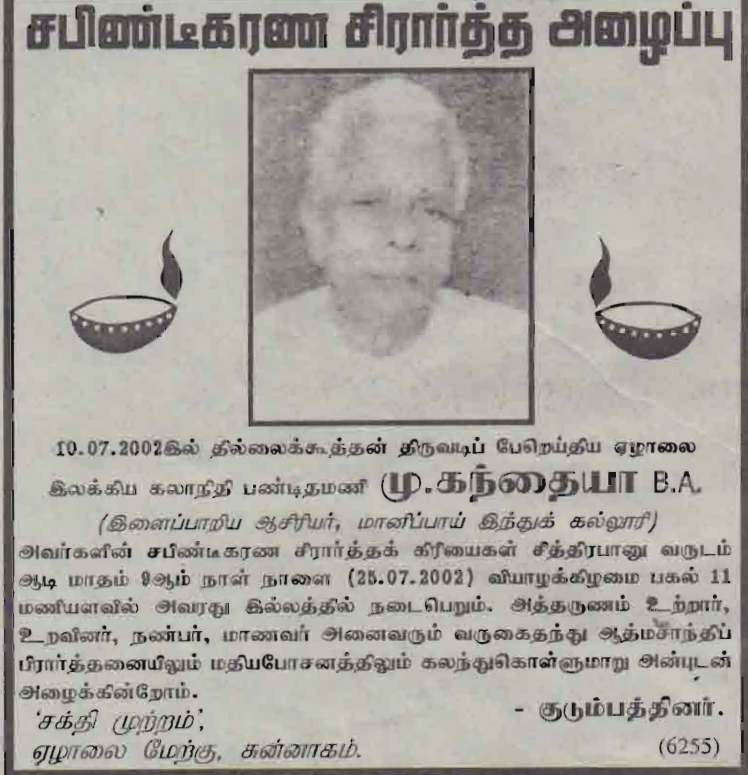 சபிண்டீகரண சிரார்த்த அழைப்பு
10.07.2002இல் தில்லைக்கூத்தன் திருவடிப் பேறெய்திய ஏழாலை
இலக்கிய கலாநிதி பண்டிதமணி மு.கந்தையா B.A.
(இளைப்பாறிய ஆசிரியர், மானிப்பாய் இந்துக் கல்லூரி)
அவர்களின் சபிண்டீகரண சிரார்த்தக் கிரியைகள் சித்திரபானு வருடம்
ஆடி மாதம் 9ஆம் நாள் நாளை (25.07.2002) வியாழக்கிழமை பகல் 11
மணியளவில் அவரது இல்லத்தில் நடைபெறும். அத்தருணம் உற்றார்,
உறவினர், நண்பர், மாணவர் அனைவரும் வருகைதந்து ஆத்மசாந்திப்
பிரார்த்தனையிலும் மதியபோசனத்திலும் கலந்துகொள்ளுமாறு அன்புடன்
அழைக்கின்றோம்.
- குடும்பத்தினர்.
'சக்தி முற்றம்',
ஏழாலை மேற்கு, சுன்னாகம்.
(6255)